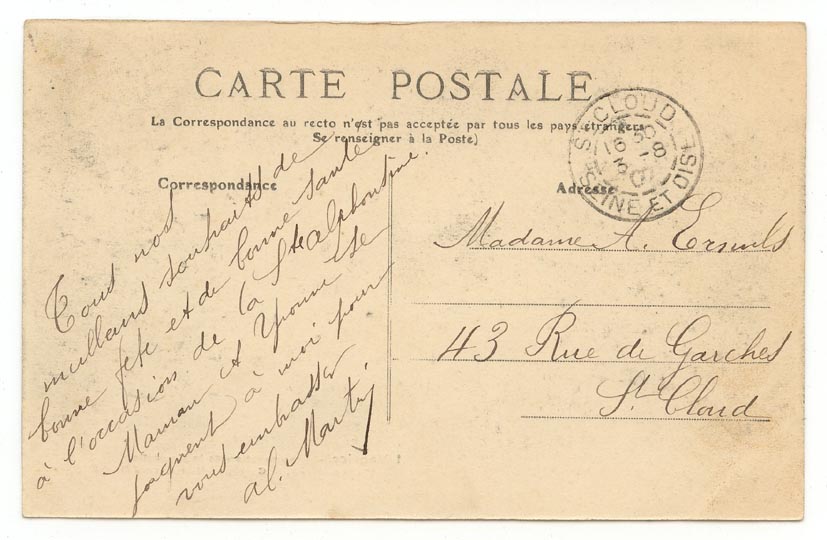 CARTE POSTALE
La Correspondance au recto n'est pas acceptée par tous les pays étrangers
Se renseigner à la Poste)
Correspondance
Adresse
ST CLOUD
16 30
3 -8
SEINE ET OISE
Tous nos
meilleurs souhaits de
bonne fête et de bonne santé
à l'occasion de la Ste alphonsine.
Maman et Yvonne se
joignent à moi pour
vous embrasser
al. Martij
Madame A.
43 Rue de Garches
St Cloud